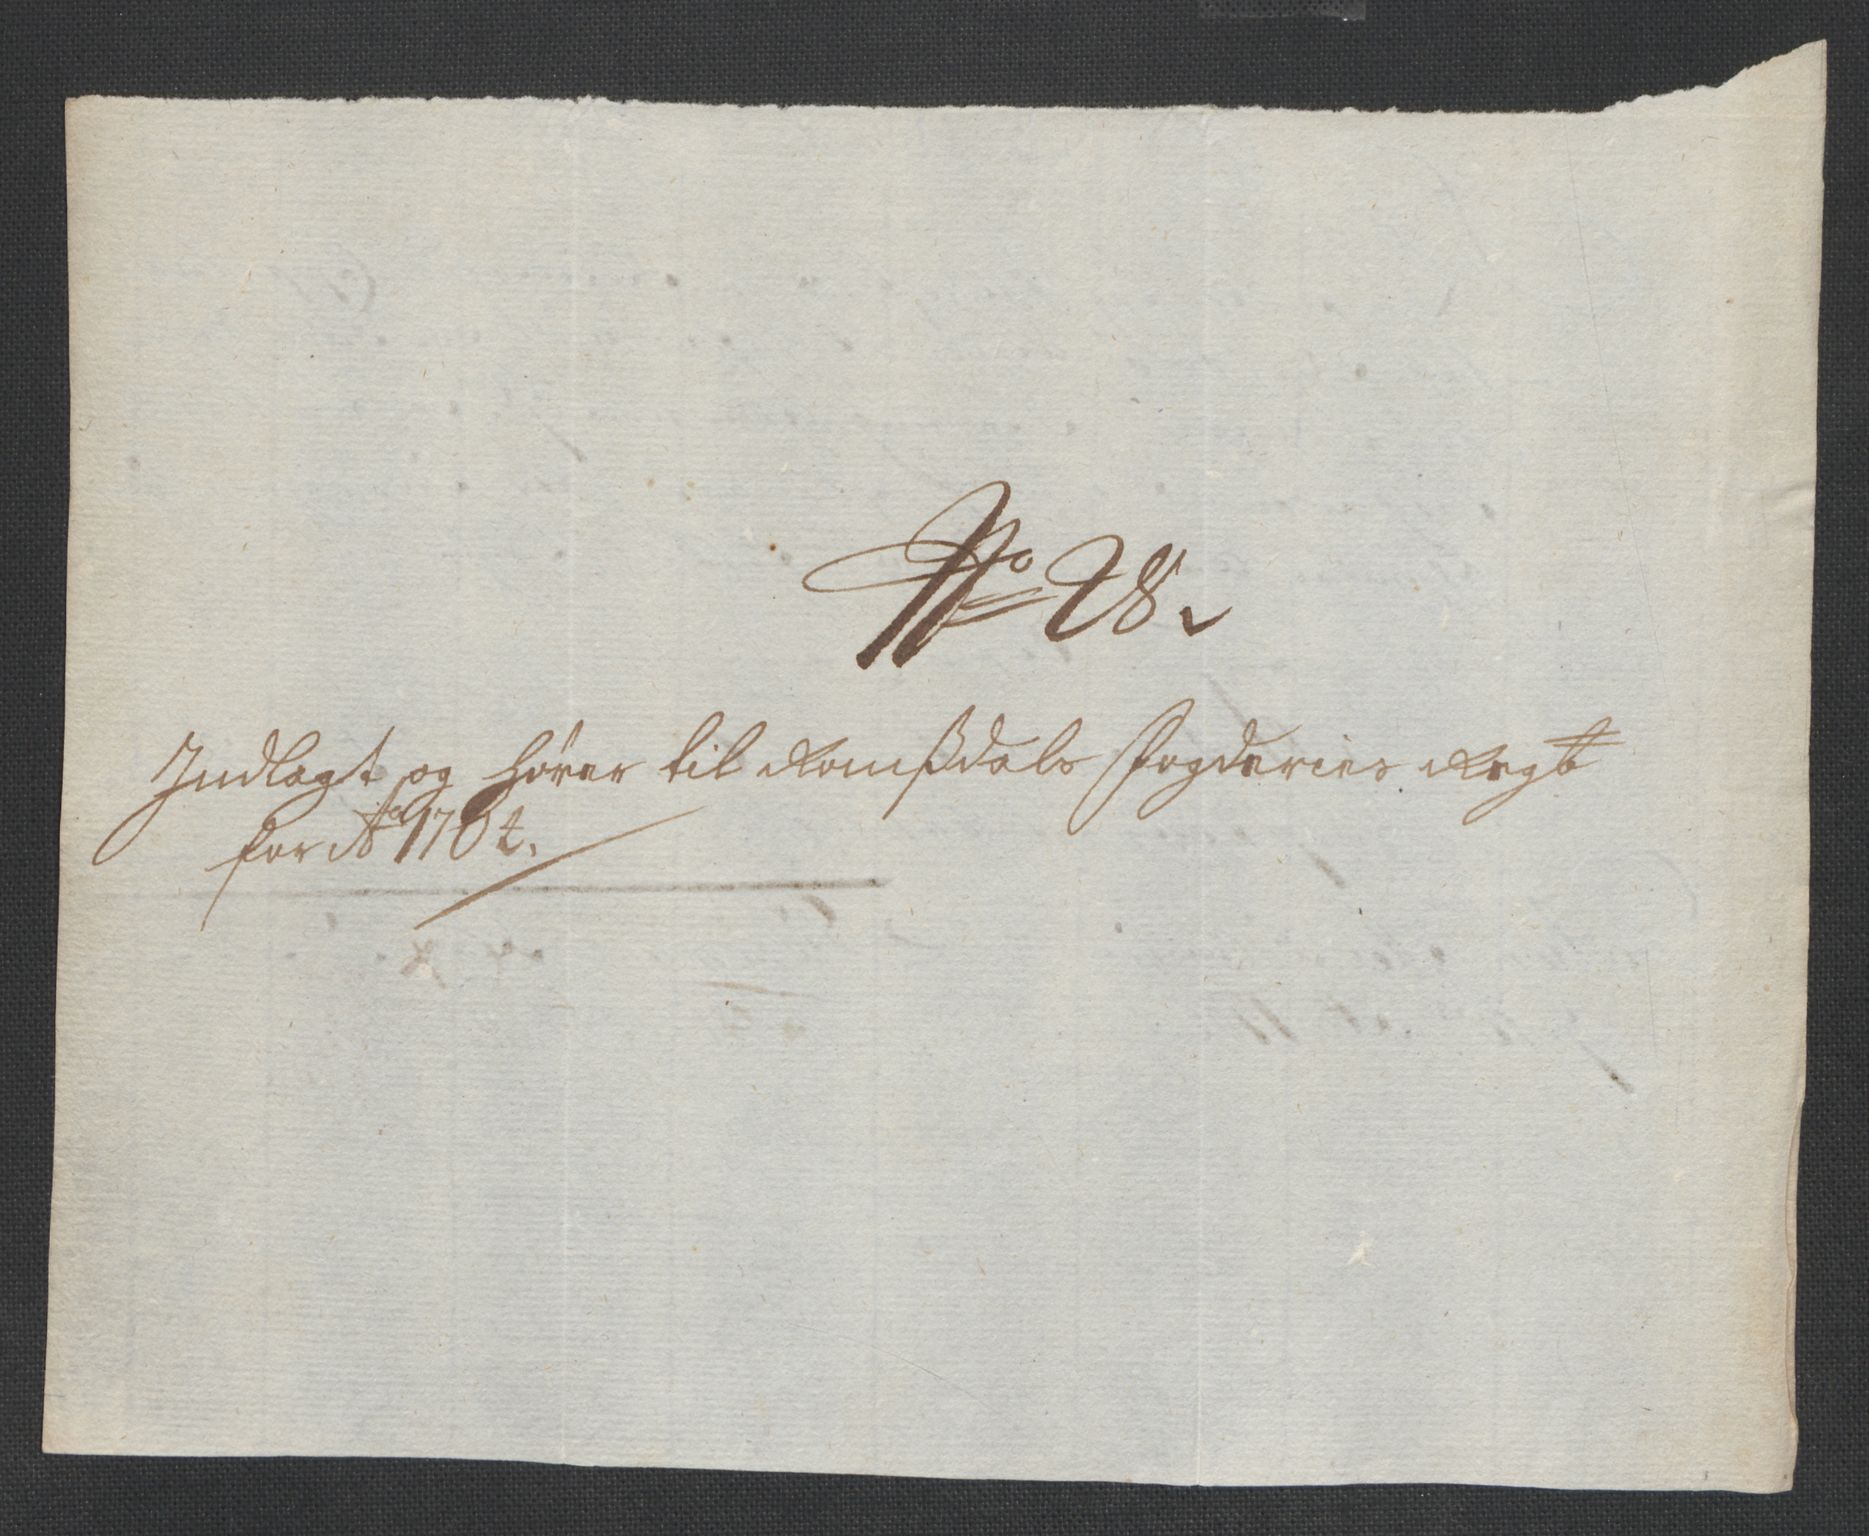 No 28.
Indlagt og hører til Romßdals Fogderies Regb
for Ao 1704.